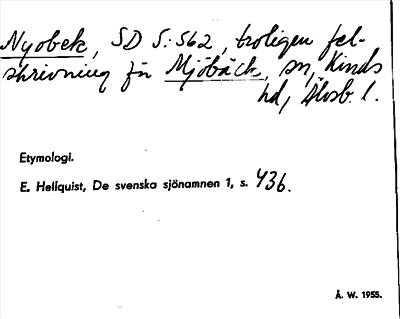 Nyobek, SD 5:562, troligen fel-
skrivning för Mjöbäck, sn, Kinds
hd, Älvsb. l.
Etymologi.
E. Hellquist, De svenska sjönamnen 1, s. 436.
Å. W. 1955.